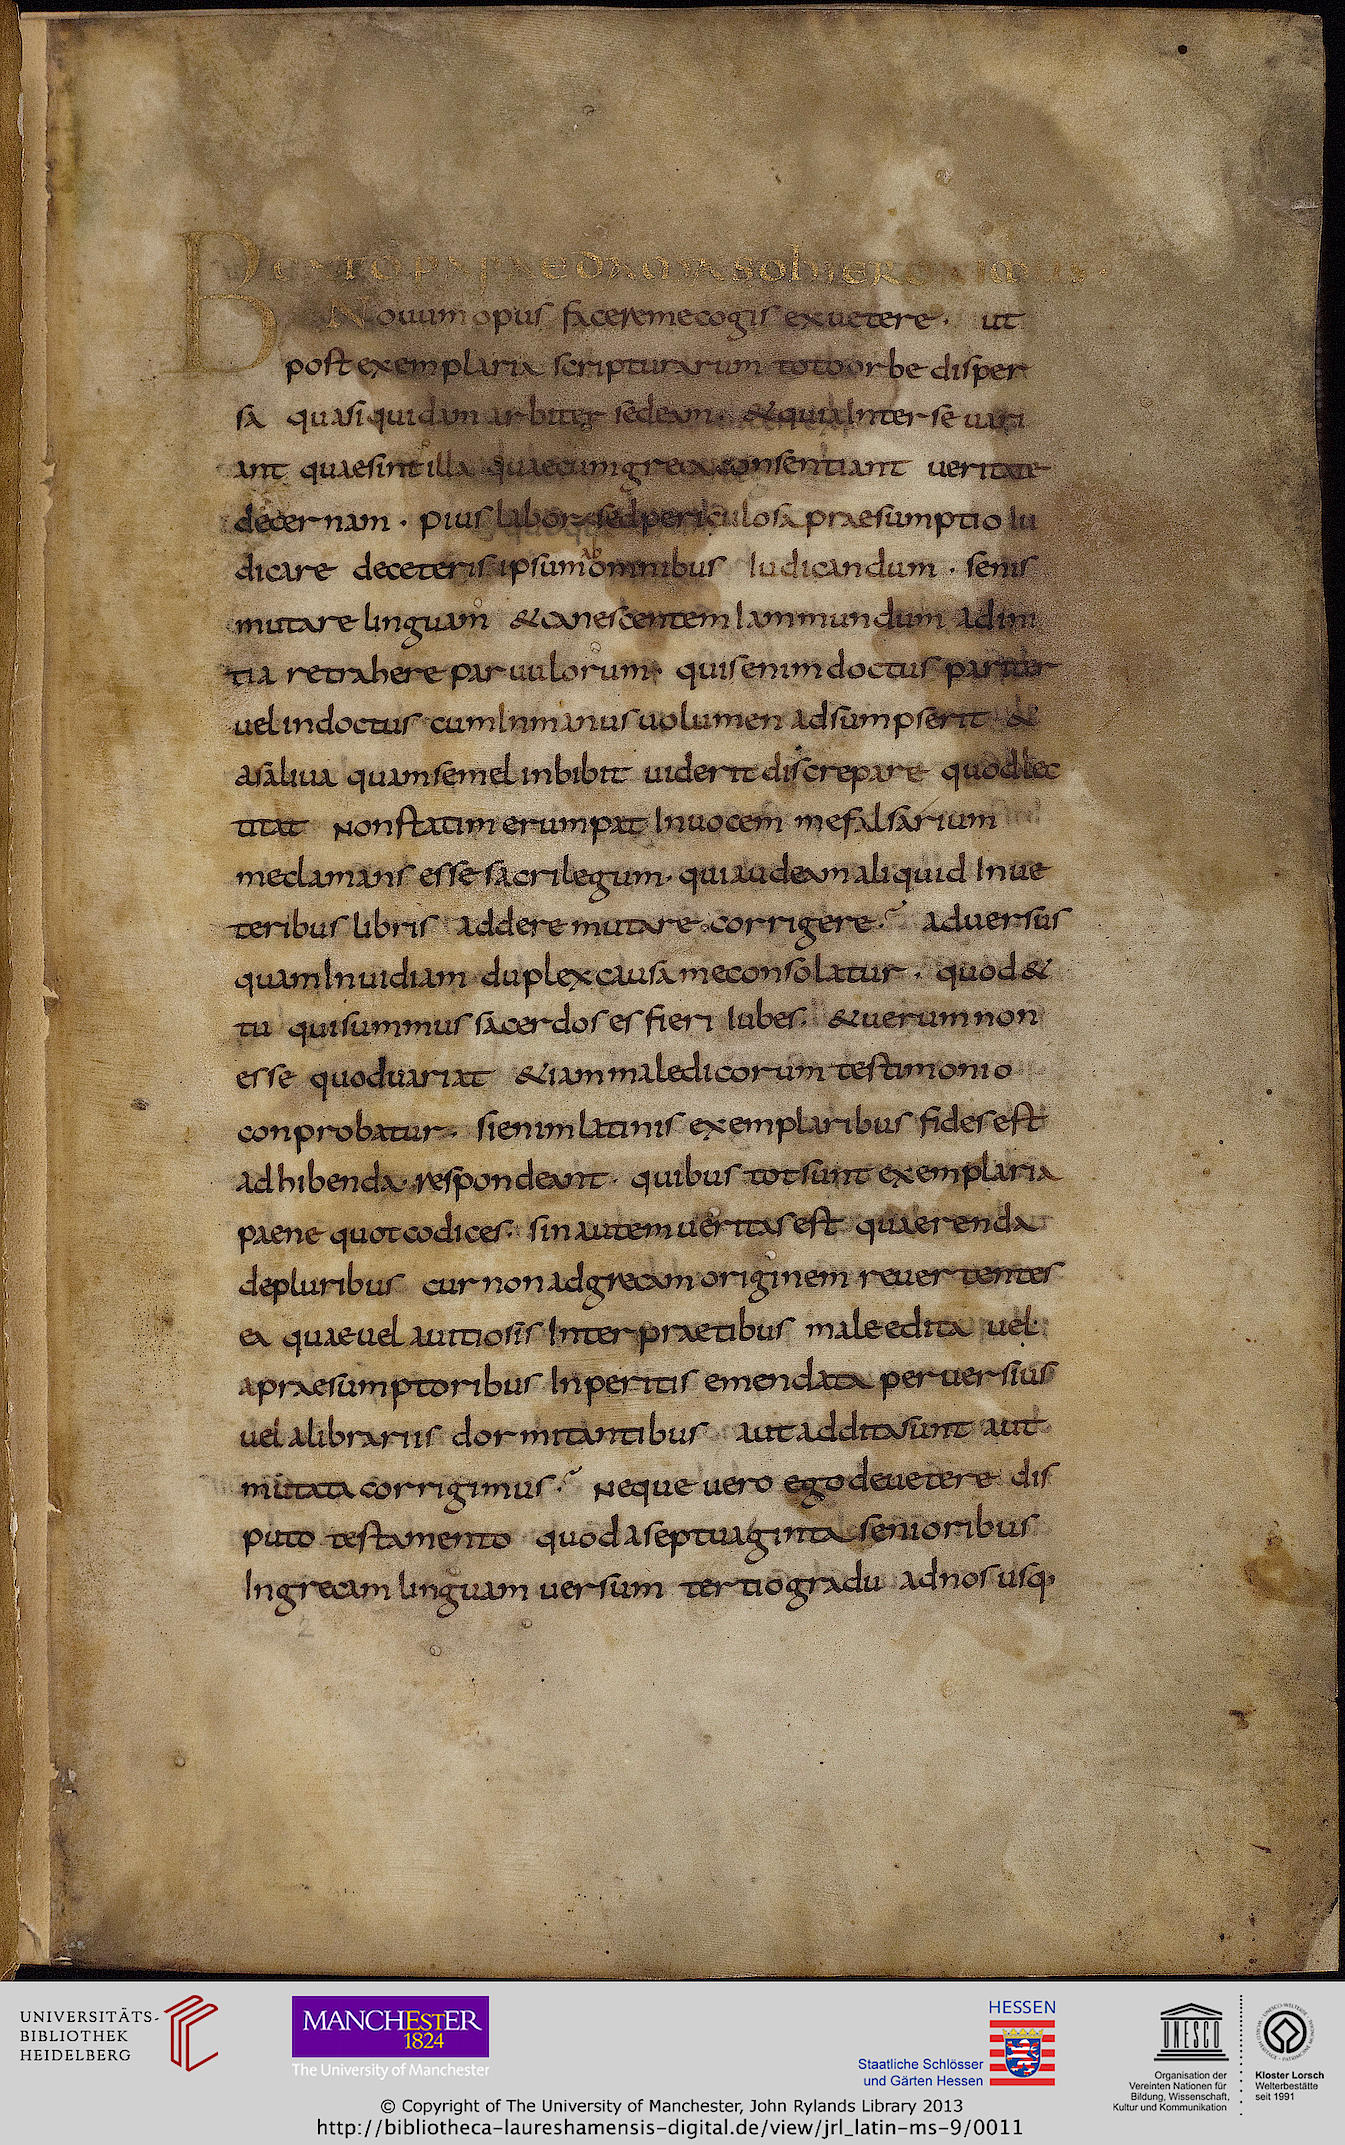 BEATO PAPAE DAMASO HIERONIMUS.
Nouum opus facere me cogis ex uetere. ut
post exemplaria scripturarum toto orbe disper
sa quasi quidam arbiter sedeam. & quia Inter se uari
ant quae sint illa quae cum greca consentiant ueritate
decernam. pius labor sed periculosa praesumptio Iu
dicare de ceteris ipsum ab omnibus Iudicandum. senis
mutare linguam & canescentem Iam mundum ad ini
tia retrahere paruulorum. quis enim doctus pariter
uel indoctus cum In manus uolumen adsumpserit &
a saliua quam semel inbibit uiderit discrepare quod lec
titat Non statim erumpat In uocem me falsarium
me clamans esse sacrilegum. qui audeam aliquid In ue
teribus libris addere mutare corrigere. aduersus
quam Inuidiam duplex causa me consolatur. quod &
tu qui summus sacerdos es fieri Iubes. & uerum non
esse quod uariat &iam maledicorum testimonio
conprobatur. si enim latinis exemplaribus fides est
adhibenda. respondeant. quibus tot sunt exemplaria
paene quot codices. sin autem ueritas est quaerenda
de pluribus cur non ad grecam originem reuertentes
ea quae uel a uitiosis Interpraetibus male edita uel
a praesumptoribus Inperitis emendata peruersius
uel a librariis dormitantibus aut addita sunt aut
mutata corrigimus. Neque uero ego de uetere dis
puto testamento quod a septuaginta senioribus
In grecam linguam uersum tertio gradu ad nos usq;
UNIVERSITÄTS-
BIBLIOTHEK
HEIDELBERG
MANCHESTER
1824
The University of Manchester
HESSEN
Staatliche Schlösser
und Gärten Hessen
UNESCO
Organisation der
Vereinten Nationen für
Bildung, Wissenschaft,
Kultur und Kommunikation
Kloster Lorsch
Welterbestätte
seit 1991
© Copyright of The University of Manchester, John Rylands Library 2013
http://bibliotheca-laureshamensis-digital.de/view/jrl_latin-ms-9/0011